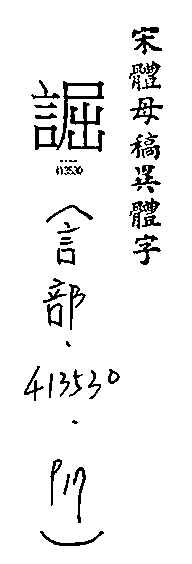 宋體母稿異體字
誳
413530
(言部.413530.P17)